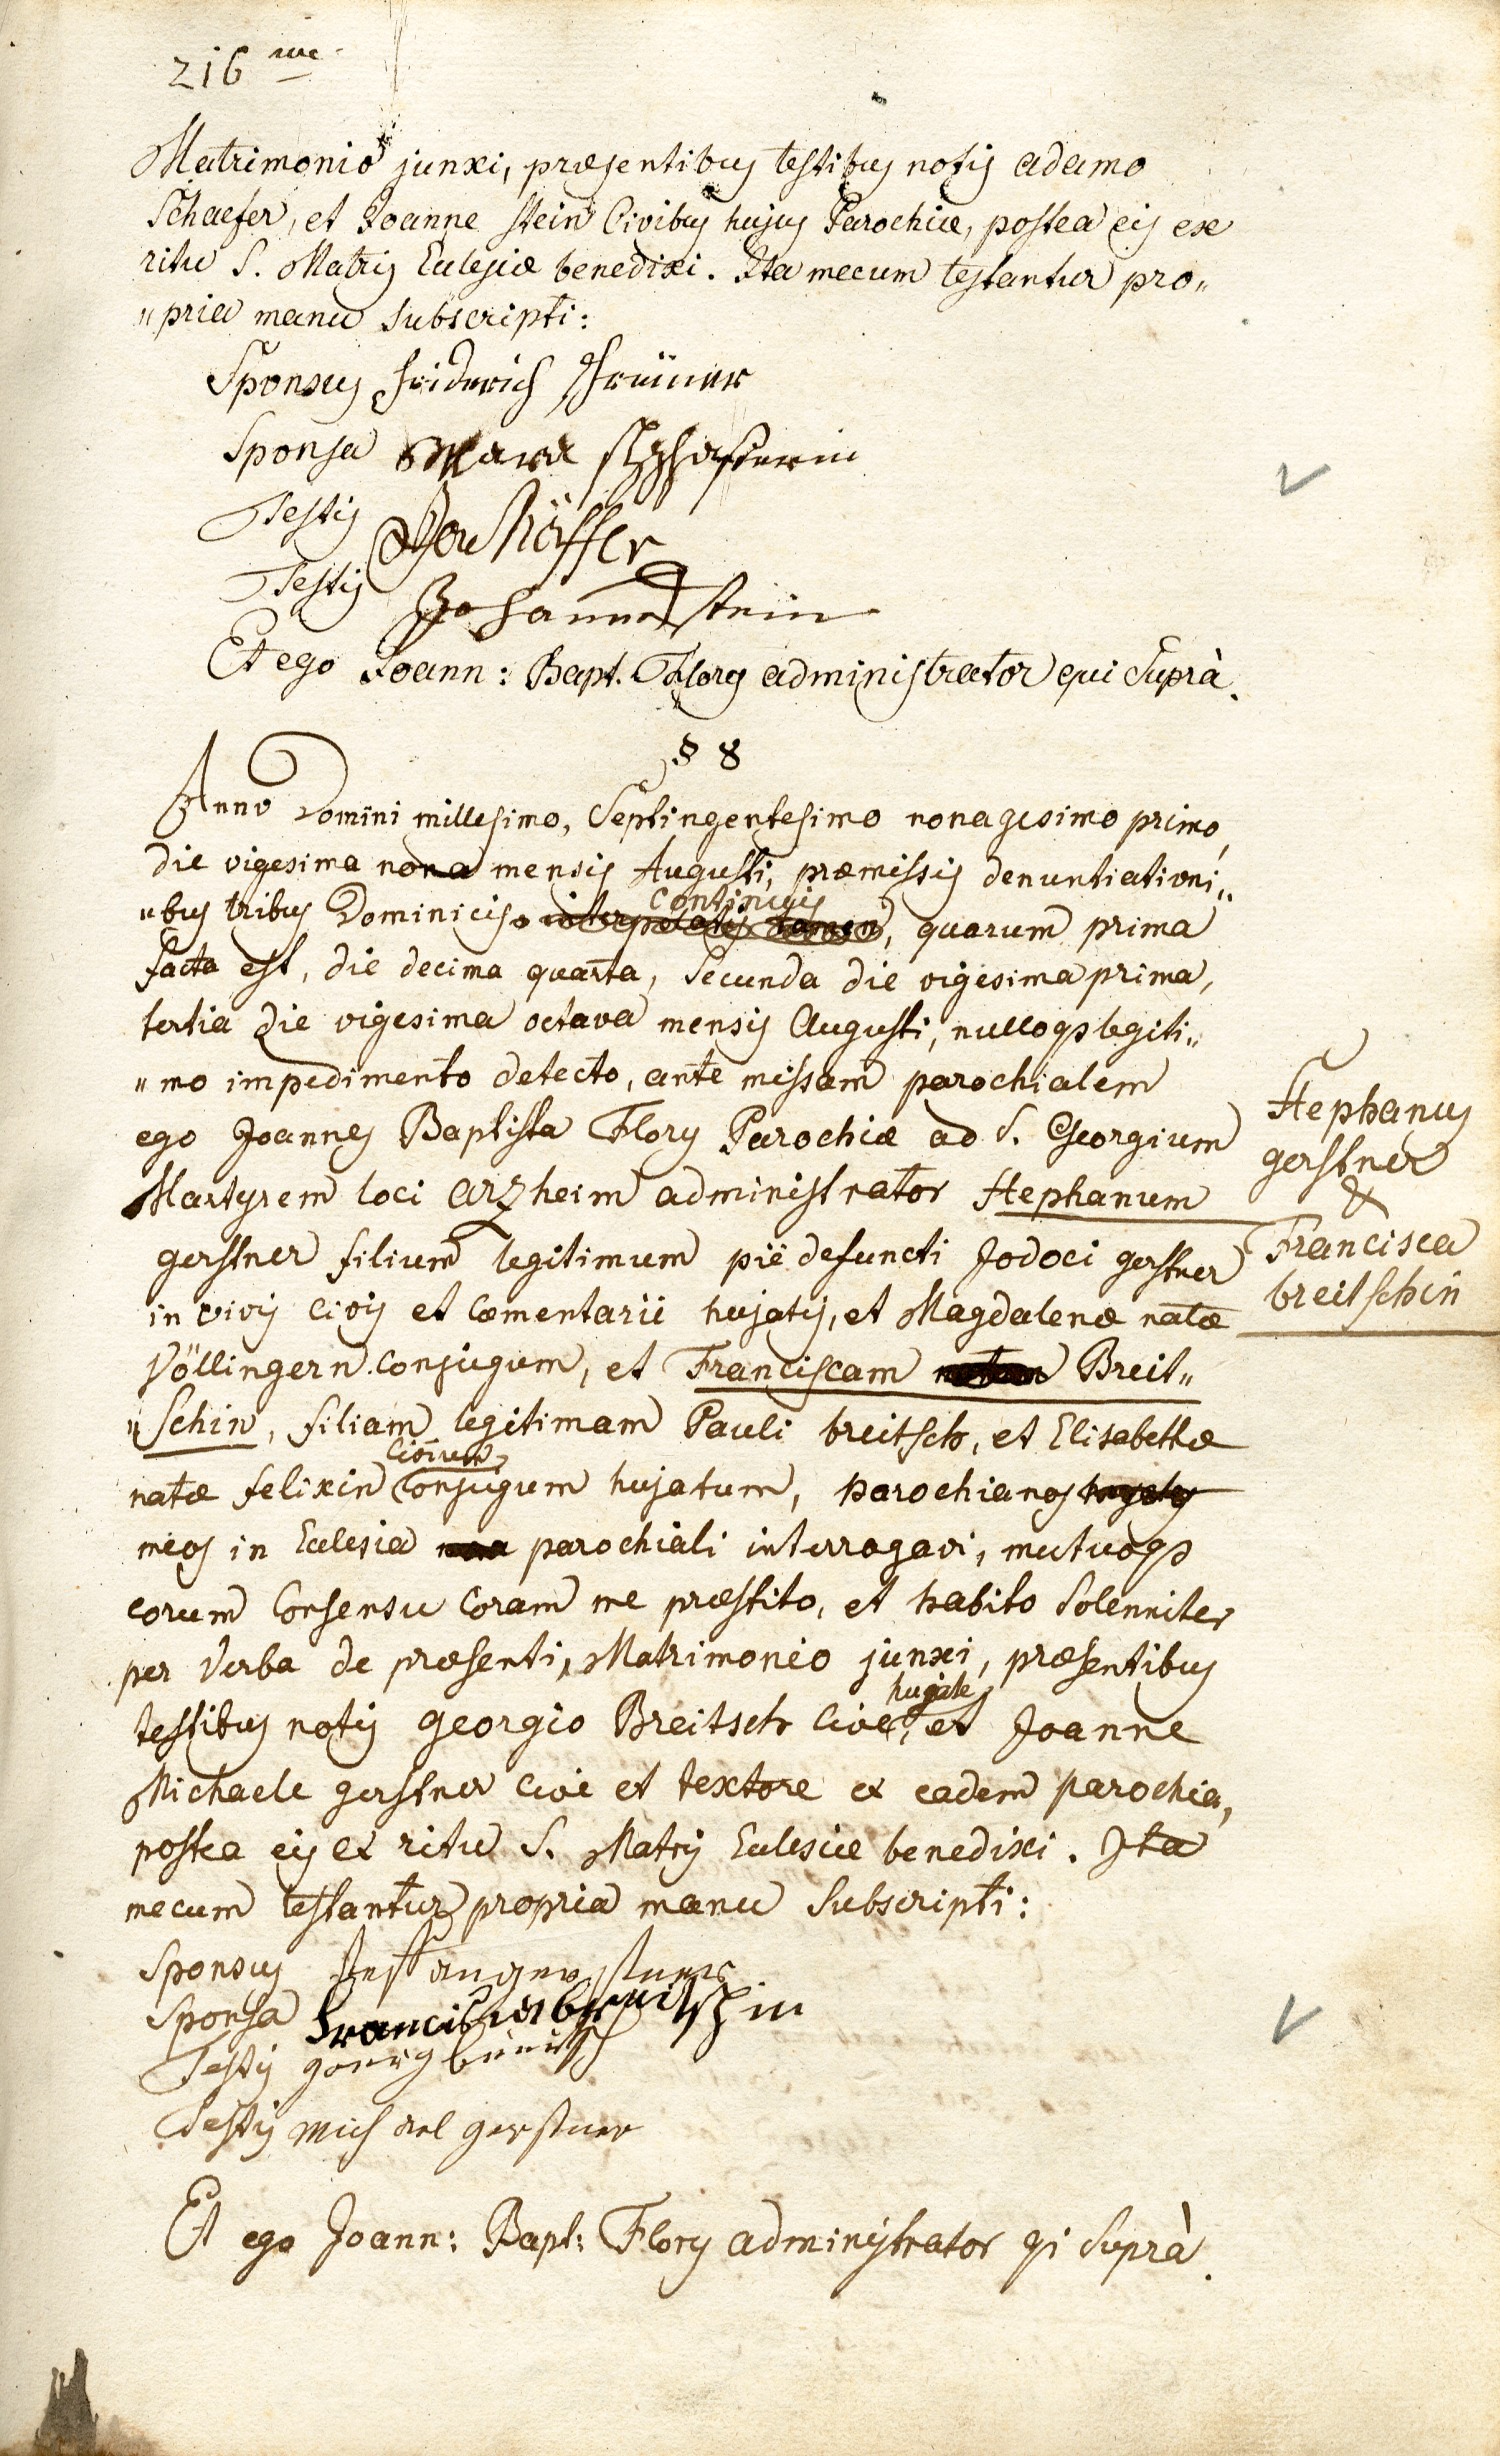 216 me
Matrimonio junxi, præsentibus testibus notis adamo
Schaefer, et Joanne Stein Civibus hujus Parochiæ, postea eis ex
ritu S. Matris Eclesiæ benedixi. Ita mecum testantur pro„
„pria manu subscripti:
Sponsus Friderich
Sponsa
Testis
Testis Johannes Stein
Et ego Joann: Bapt. Flory administrator qui Suprà.
§ 8
Anno Domini millesimo, Septingentesimo nonagesimo primo,
die vigesima nona mensis Augusti, præmissis denuntiationi„
Continuis
„bus tribus Dominicis interpolatis tamen, quarum prima
facta est, die decima quarta, Secunda die vigesima prima,
tertia die vigesima octava mensis Augusti, nulloqs legiti„
„mo impedimento detecto, ante missam parochialem
ego Joannes Baptista Flory Parochiæ ad S. Georgium
Martyrem loci Arzheim administrator Stephanum
gerstner filium legitimum piè defuncti Jodoci gerstner
in vivis civis et Cœmentarii hujatis, et Magdalenæ natæ
Völlingern conjugum, et Franciscam Breit„
„Schin, filiam legitimam Pauli breitsch, et Elisabethæ
Civium
natæ felixin Conjugum hujatum, parochianos
meos in Eclesia parochiali interrogavi, mutuoqs
eorum Consensu Coram me præstito, et habito Solenniter
per Verba de præsenti, Matrimonio junxi, præsentibus
hujate
testibus notis georgio Breitsch Cive, et Joanne
Michaele gerstner Cive et textore ex eadem parochia,
postea eis ex ritu S. Matris Eclesiæ benedixi. Ita
mecum testantur propria manu Subscripti:
Sponsus
Sponsa Francisca breitschin
Testis georg breitsch
Testis Michael gerstner
Et ego Joann: Bapt: Flory administrator qi Suprà.
Stephanus
gerstner
&
Francisca
breitschin